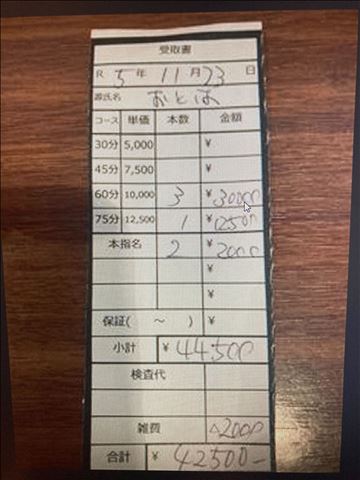 受取書
R 5 年 11 月 23 日
源氏名 おとは
コース 単価 本数 金額
30分 5,000 ¥
45分 7,500 ¥
60分 10,000 3 ¥30000
75分 12,500 1 ¥12500
本指名 2 ¥2000
¥
¥
保証( ～ ) ¥
小計 ¥44,500
検査代
雑費 △2000
合計 ¥ 42500-